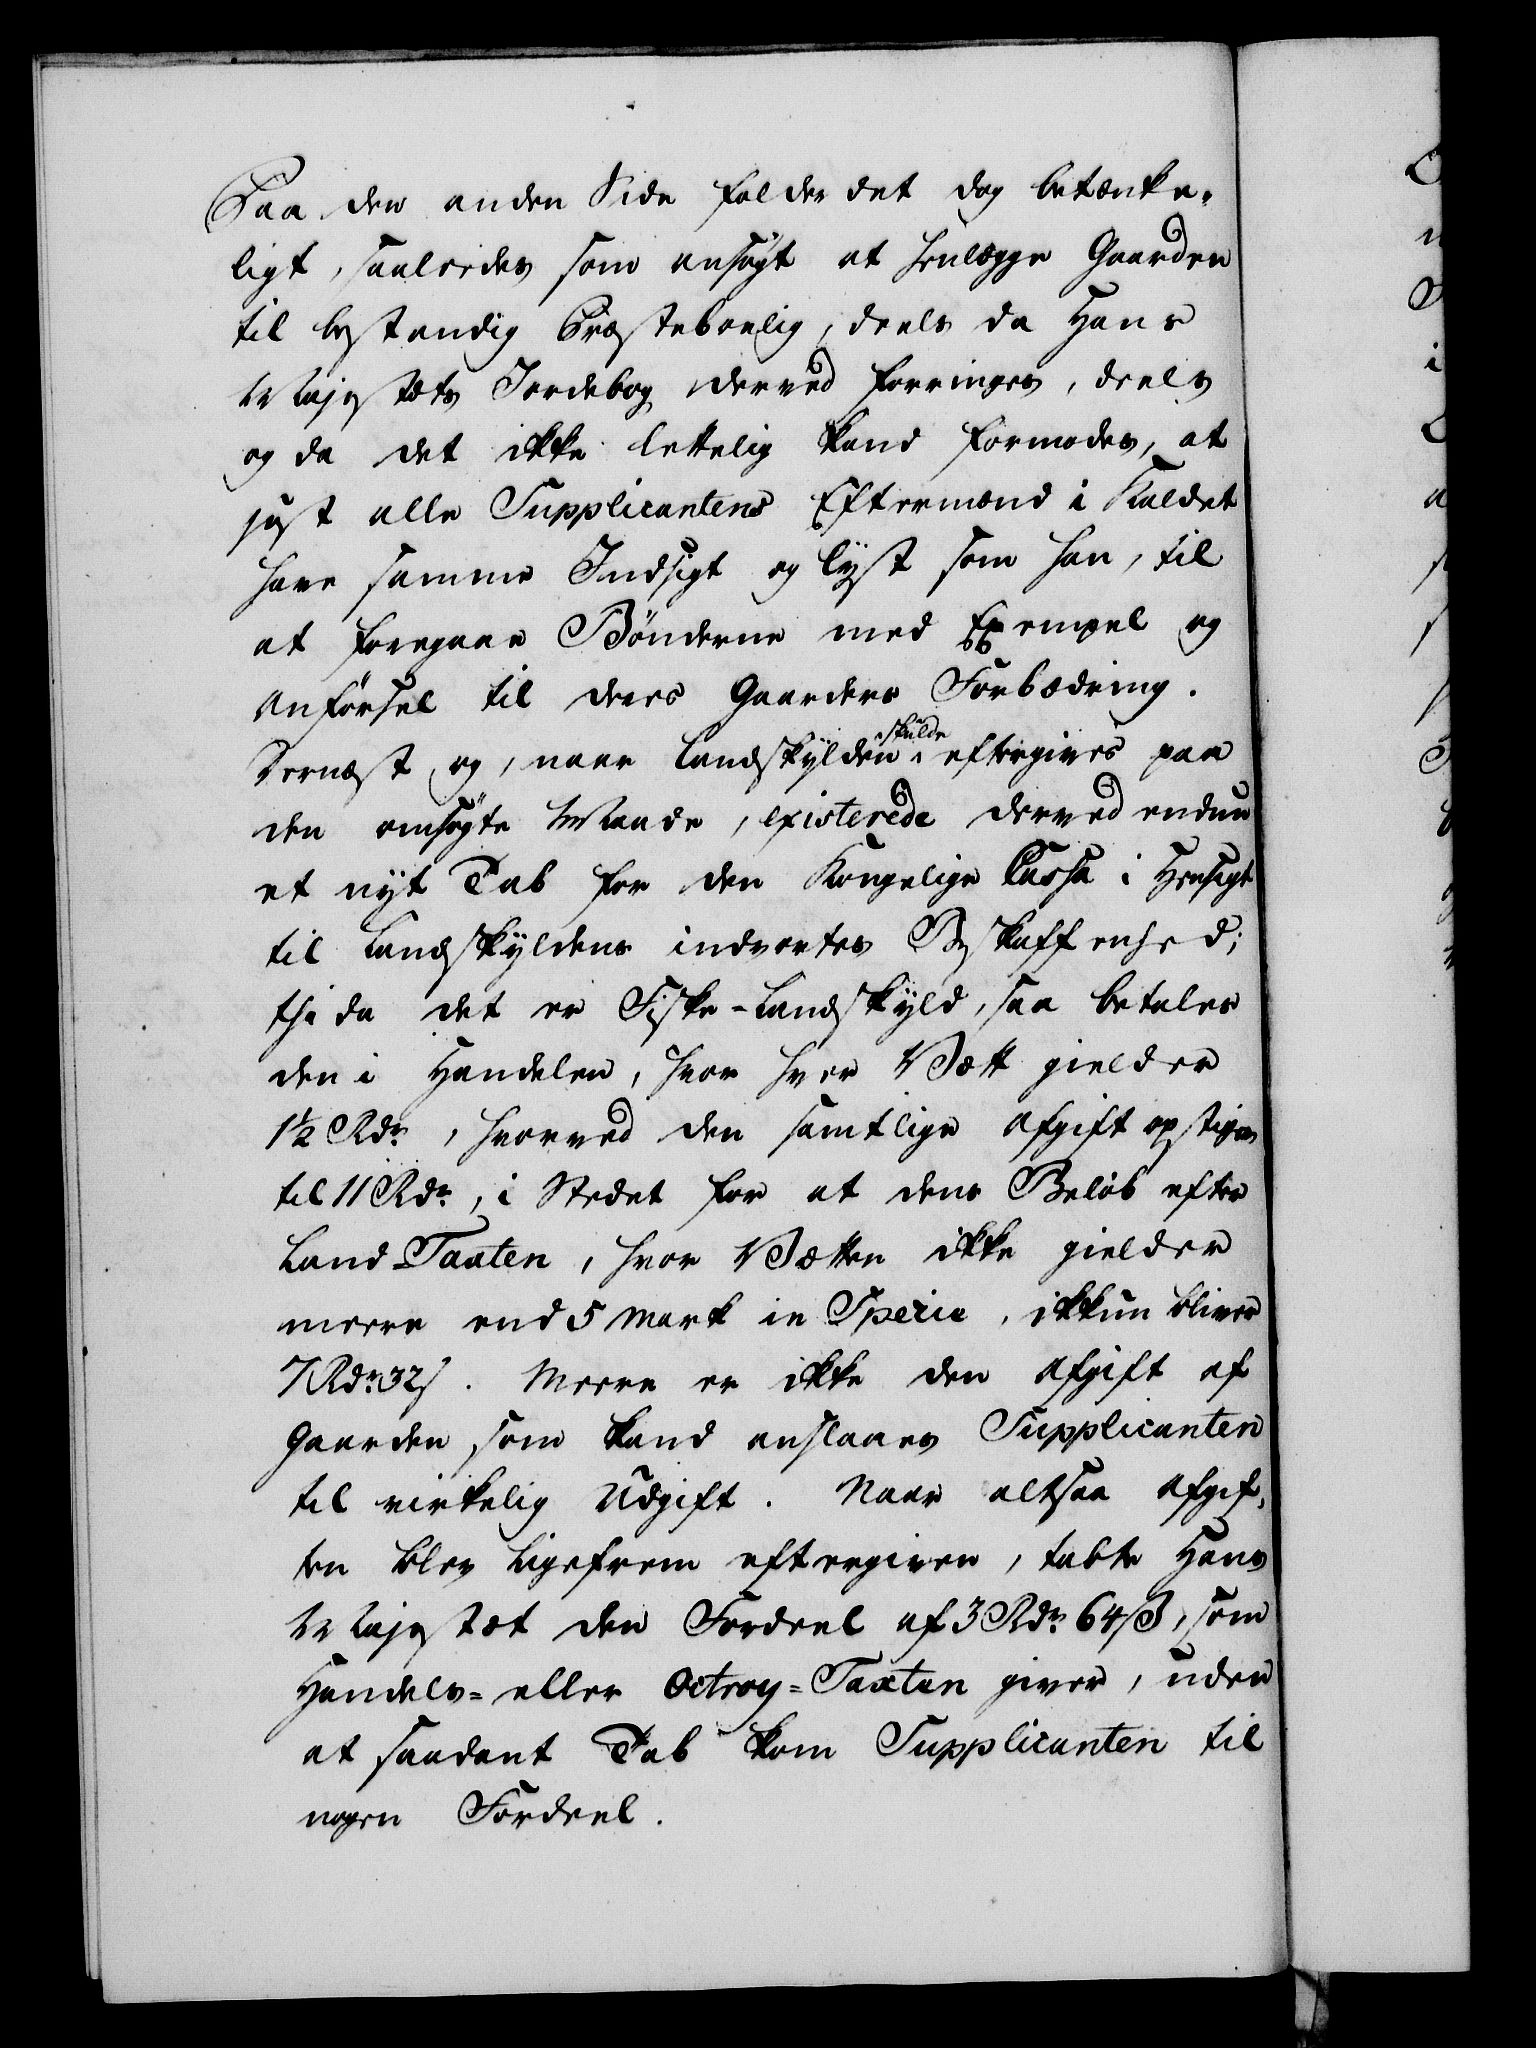 Paa den anden Side falder det dog betænke-
ligt, saaleedes som ansøgt at henlægge Gaarden
til bestandig Præsteboelig, deels da Hans
Majestæts Jordebog derved forringes, deels
og da det ikke lettelig kand formodes, at
just alle Supplicantens Eftermænd i Kaldet
have samme Indsigt og Lyst som han, til
at foregaae Bønderne med Exempel og
Anførsel til deres Gaarders Forbædring.
Dernæst og, naar Landskylden skulde eftergives paa
den omsøgte Maade, existerede derved endnu
et nyt Tab for den Kongelige Cassa i Hensigt
til Landskyldens indvortes Beskaffenhed;
thi da det er Fiske-Landskyld, saa betales
den i Handelen, hvor hver Vætt gielder
1½ Rdr, hvorved den samtlige Afgift opstiger
til 11 Rdr, i Stedet for at dens Beløb efter
Land-Taxten, hvor Vætten ikke gielder
meere end 5 Mark in Specie, ikkun bliver
7 Rdr 32 s. Meere er ikke den Afgift af
Gaarden, som kand anslaaes Supplicanten
til virkelig Udgift. Naar altsaa Afgif-
ten blev ligefrem eftergiven, tabte Hans
Majestæt den Fordeel af 3 Rdr 64 ß, som
Handels- eller Octroy-Taxten giver, uden
at saadant Tab kom Supplicanten til
nogen Fordeel.